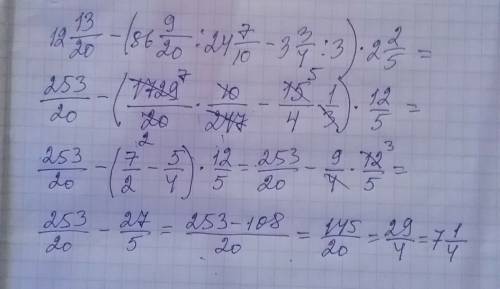 12 13/20 − (86 9/20 : 24 7/10 − 3 3/4 : 3) · 2 2/5 =
253/20 − (1729/20 · 10/247 − 15/4 · 1/3) · 12/5 =
253/20 − (7/2 − 5/4) · 12/5 = 253/20 − 9/4 · 12/5 =
253/20 − 27/5 = 253−108/20 = 145/20 = 29/4 = 7 1/4